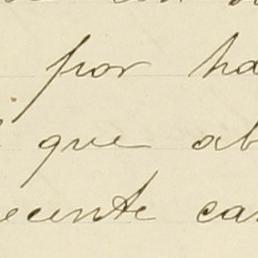 por ha
que ab
ecente ca